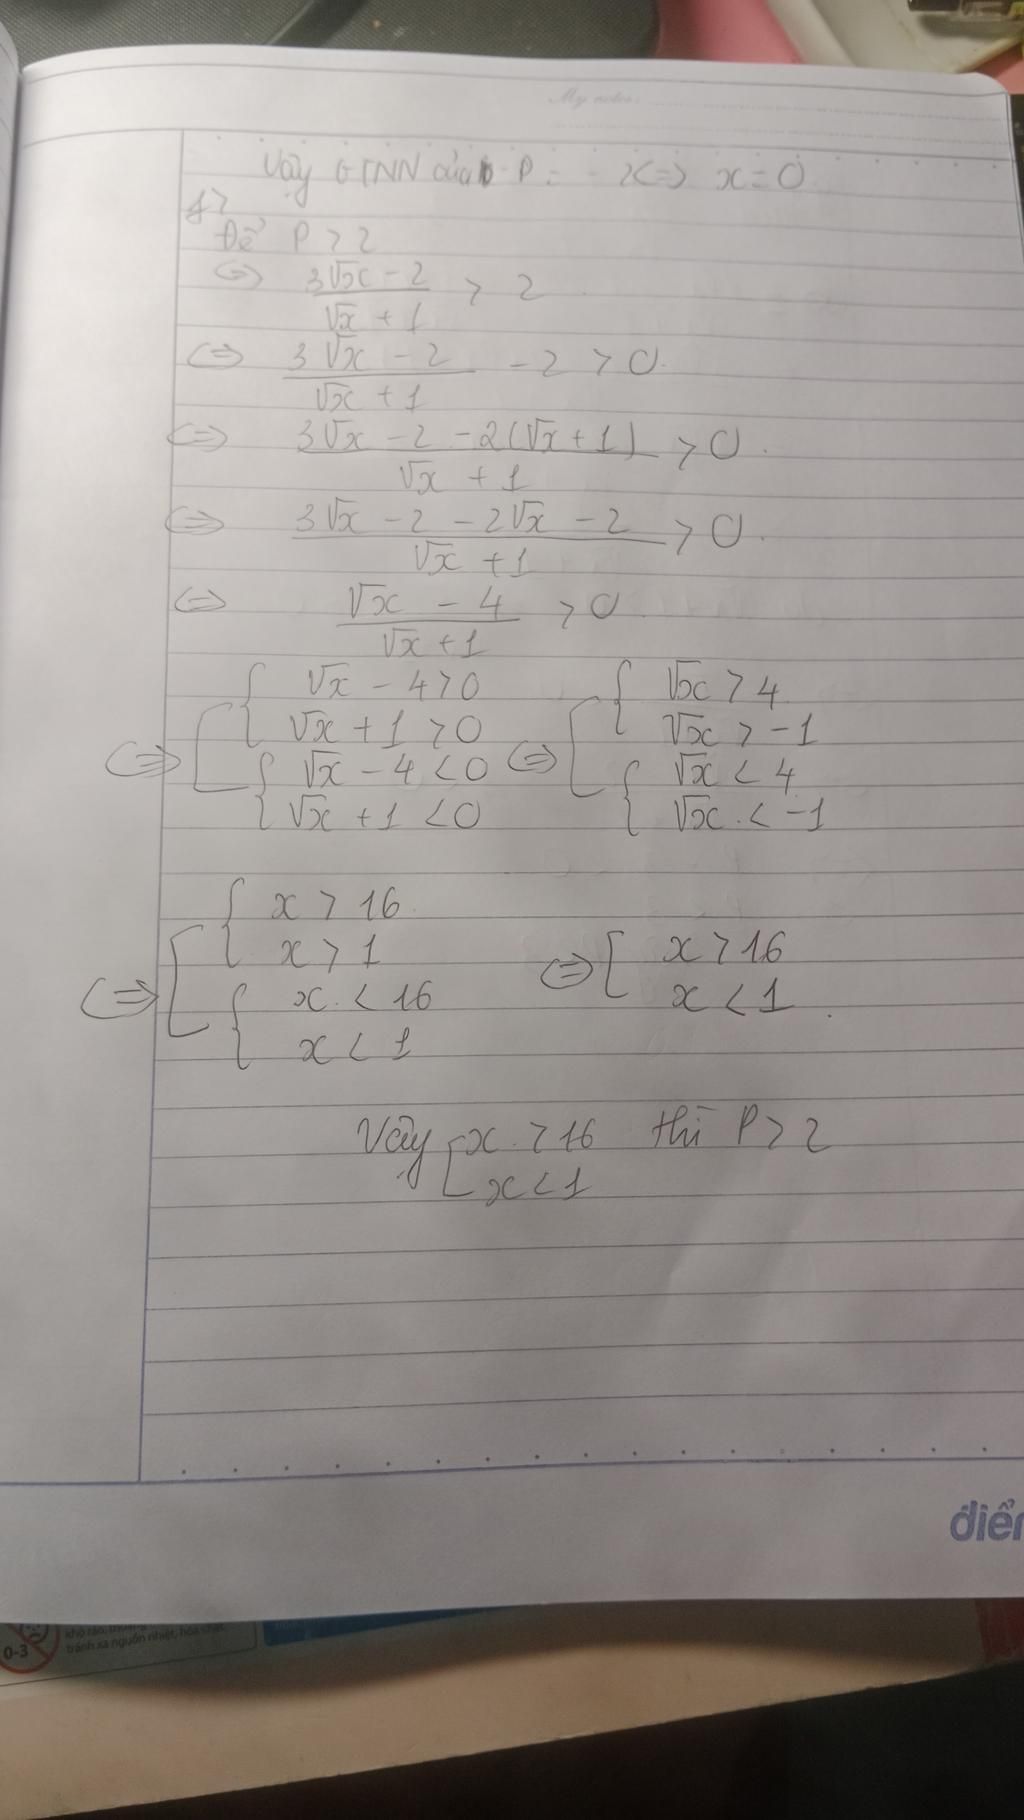 My notes:
Vậy GTNN của P = - 2 <=> x = 0
f>
Để P > 2
<=> (3√x - 2)/(√x + 1) > 2
<=> (3√x - 2)/(√x + 1) - 2 > 0.
<=> (3√x - 2 - 2(√x + 1))/(√x + 1) > 0.
<=> (3√x - 2 - 2√x - 2)/(√x + 1) > 0.
<=> (√x - 4)/(√x + 1) > 0
<=> [ { √x - 4 > 0 <=> [ { √x > 4
√x + 1 > 0 √x > -1
{ √x - 4 < 0 { √x < 4
√x + 1 < 0 √x < -1
<=> [ { x > 16
x > 1 <=> [ x > 16
{ x < 16 x < 1.
x < 1
Vậy [ x > 16 thì P > 2
x < 1
điểm
0-3
tránh xa nguồn nhiệt, hóa chất